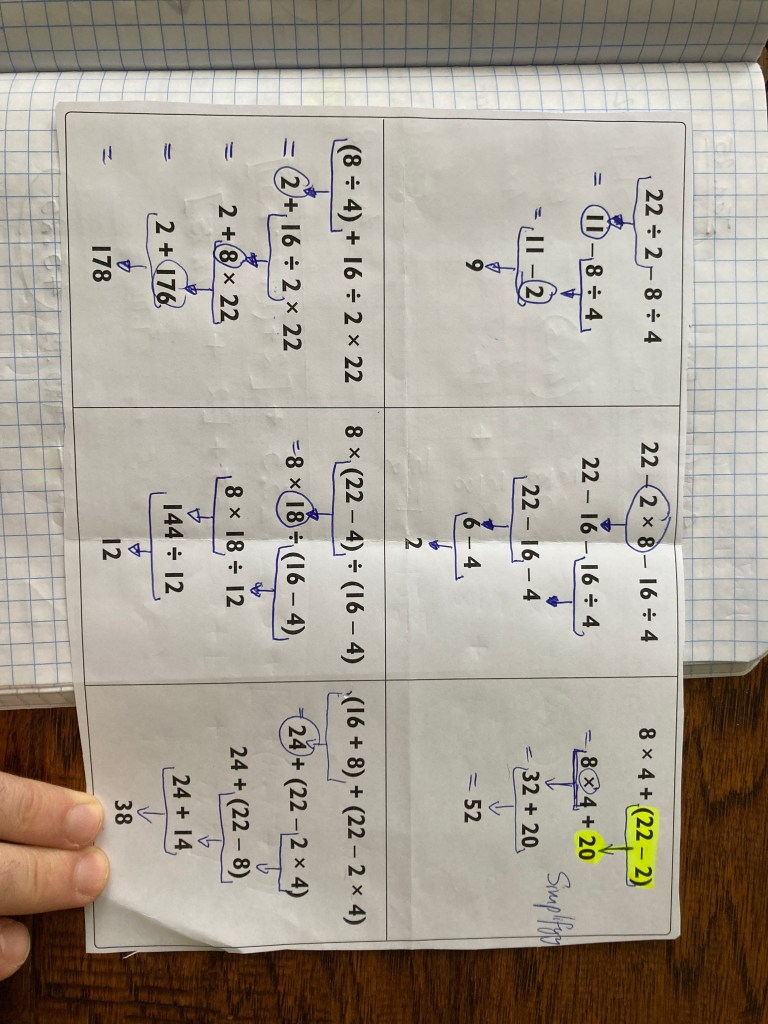 22 ÷ 2 – 8 ÷ 4
= 11 – 8 ÷ 4
= 11 – 2
9
22 – 2 × 8 – 16 ÷ 4
22 – 16 – 16 ÷ 4
22 – 16 – 4
6 – 4
2
8 × 4 + (22 – 2)
= 8 × 4 + 20
= 32 + 20
= 52
Simplifyy
(8 ÷ 4) + 16 ÷ 2 × 22
= 2 + 16 ÷ 2 × 22
= 2 + 8 × 22
= 2 + 176
= 178
8 × (22 – 4) ÷ (16 – 4)
= 8 × 18 ÷ (16 – 4)
8 × 18 ÷ 12
144 ÷ 12
12
(16 + 8) + (22 – 2 × 4)
= 24 + (22 – 2 × 4)
24 + (22 – 8)
24 + 14
38